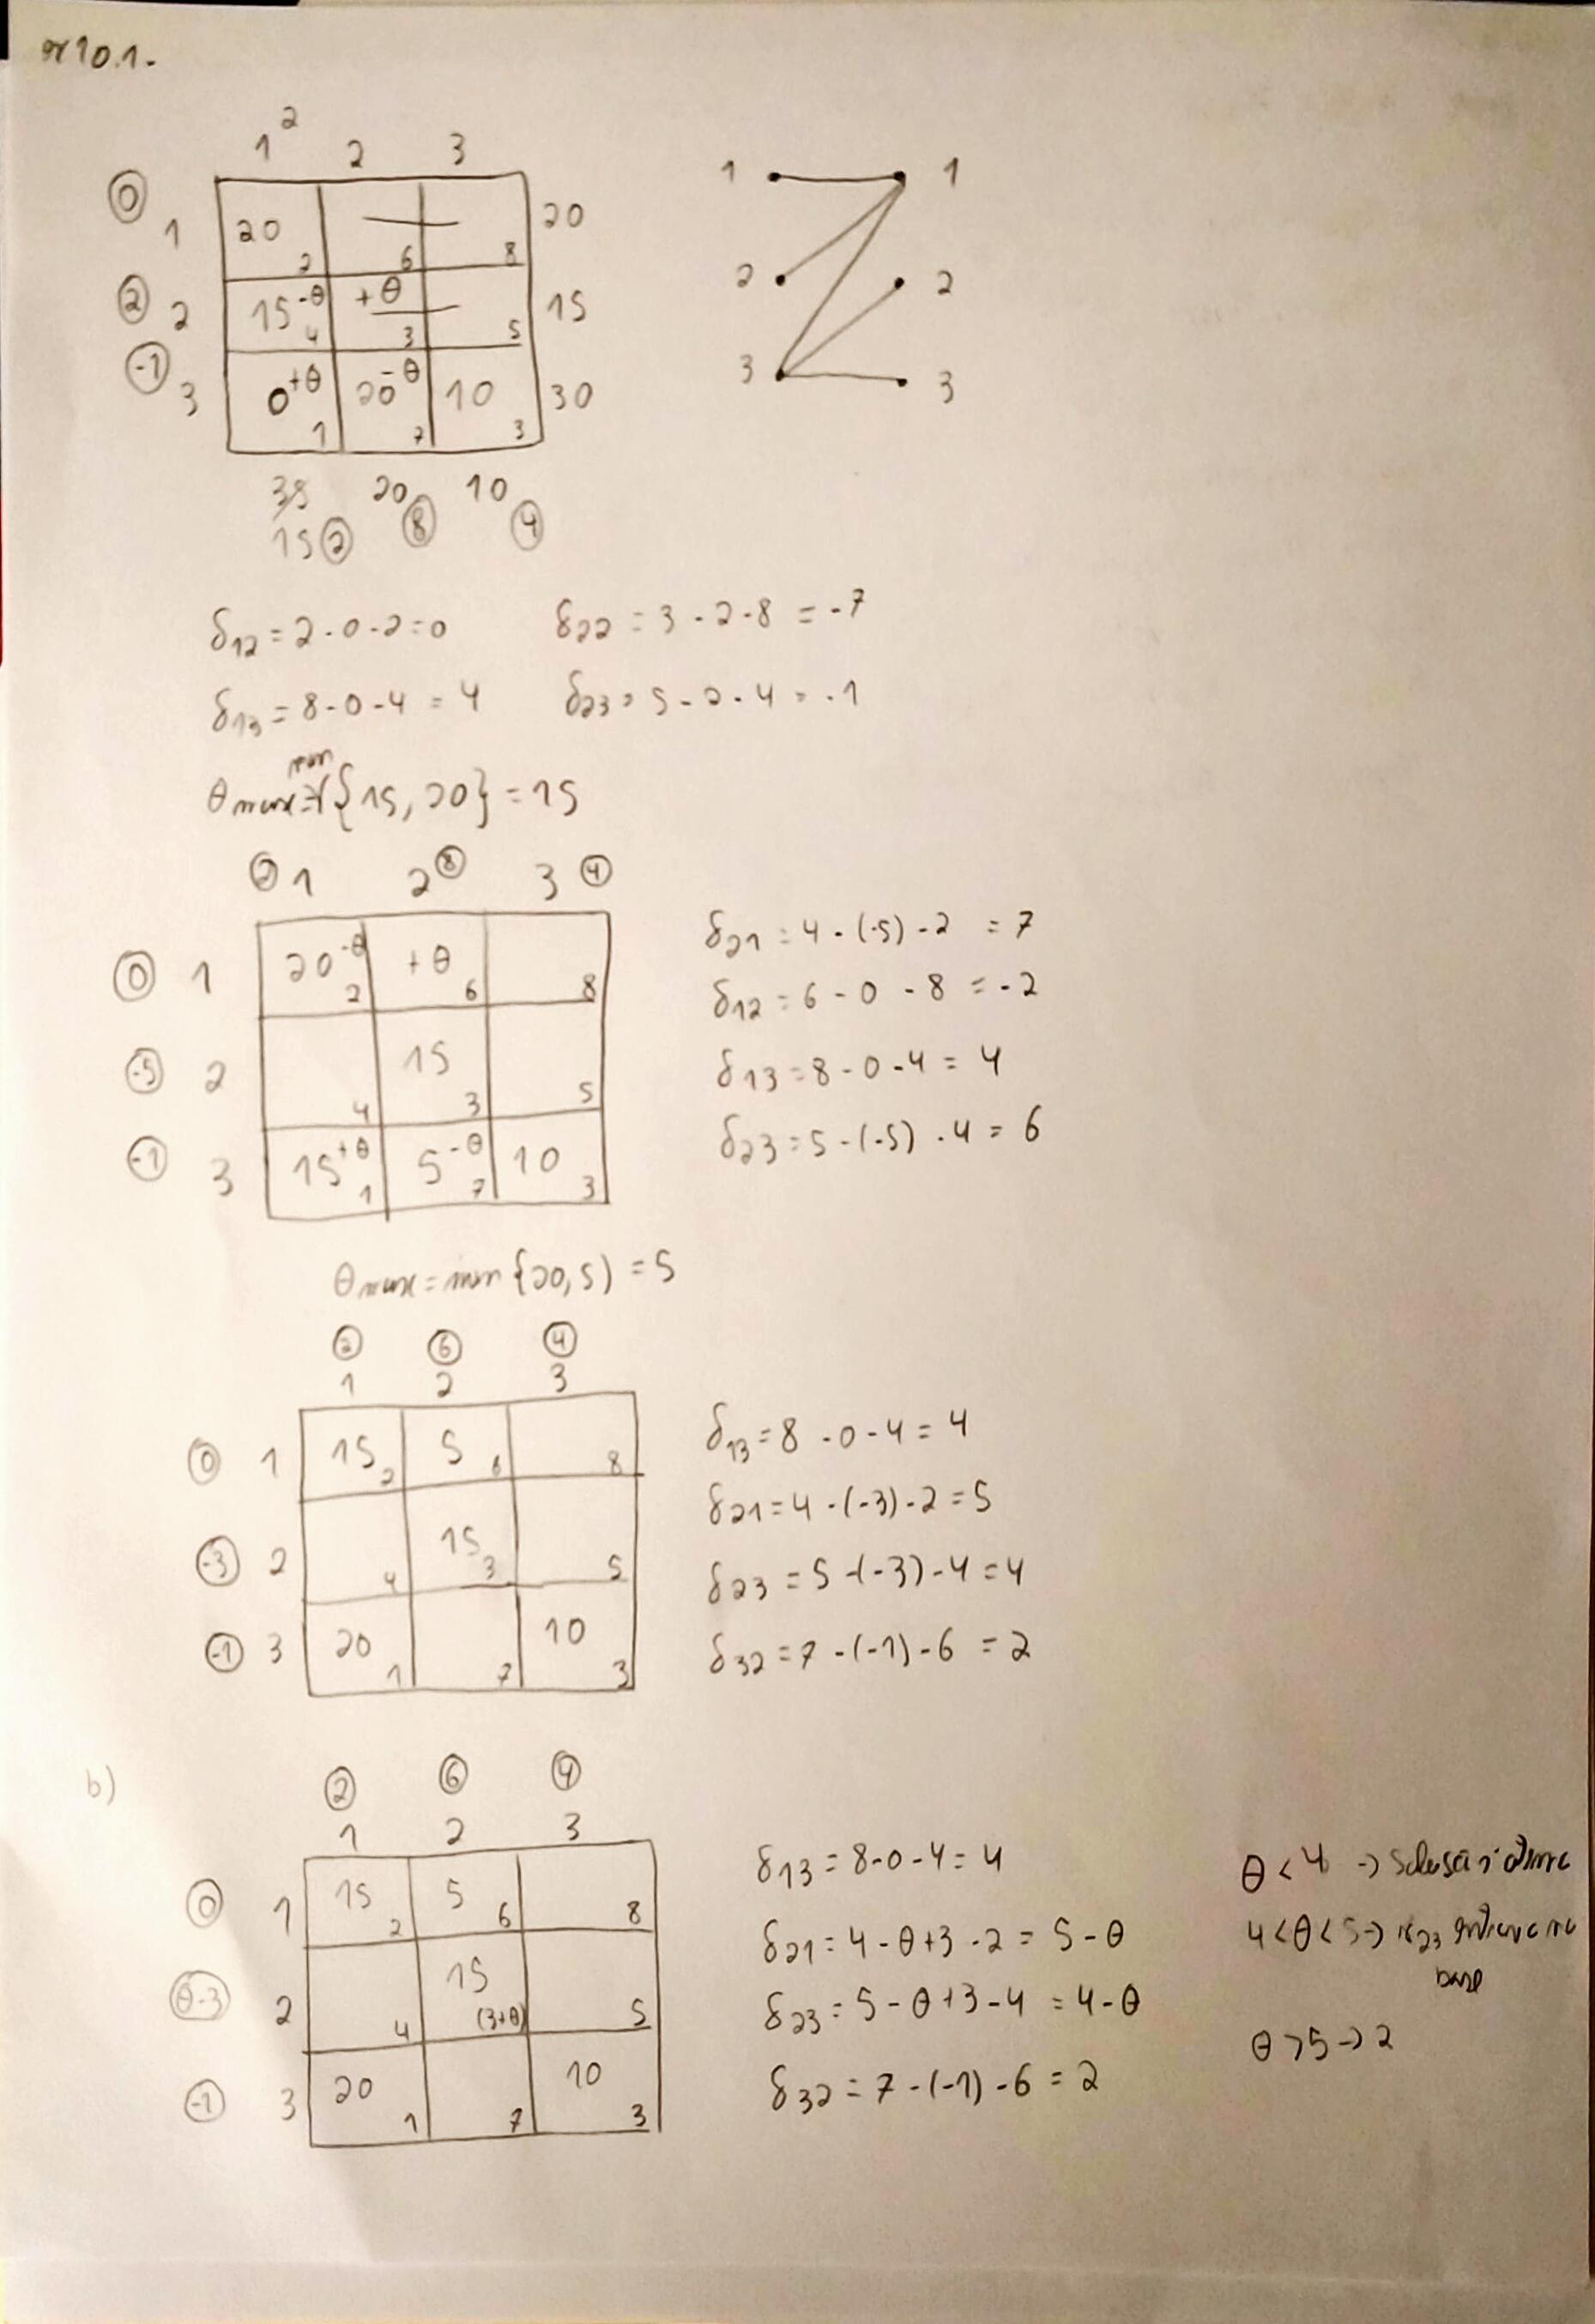 ex 10.1.
2
1 2 3
0 1 20 2 6 8 20
2 2 15 -θ 4 +θ 3 5 15
-1 3 0 +θ 1 20 -θ 7 10 3 30
35 20 10
15 2 8 4
1 1
2 2
3 3
δ12 = 2 - 0 - 2 = 0 δ22 = 3 - 2 - 8 = -7
δ13 = 8 - 0 - 4 = 4 δ23 = 5 - 2 - 4 = -1
min
θmax = {15, 20} = 15
2 1 2 8 3 4
0 1 20 -θ 2 +θ 6 8
-5 2 4 15 3 5
-1 3 15 +θ 1 5 -θ 7 10 3
δ21 = 4 - (-5) - 2 = 7
δ12 = 6 - 0 - 8 = -2
δ13 = 8 - 0 - 4 = 4
δ23 = 5 - (-5) - 4 = 6
θmax = min {20, 5) = 5
2 6 4
1 2 3
0 1 15 2 5 6 8
-3 2 4 15 3 5
-1 3 20 1 7 10 3
δ13 = 8 - 0 - 4 = 4
δ21 = 4 - (-3) - 2 = 5
δ23 = 5 - (-3) - 4 = 4
δ32 = 7 - (-1) - 6 = 2
b)
2 6 4
1 2 3
0 1 15 2 5 6 8
θ-3 2 4 15 (3+θ) 5
-1 3 20 1 7 10 3
δ13 = 8 - 0 - 4 = 4
δ21 = 4 - θ + 3 - 2 = 5 - θ
δ23 = 5 - θ + 3 - 4 = 4 - θ
δ32 = 7 - (-1) - 6 = 2
θ < 4 →
4 < θ < 5 → x23 na
base
θ > 5 → 2